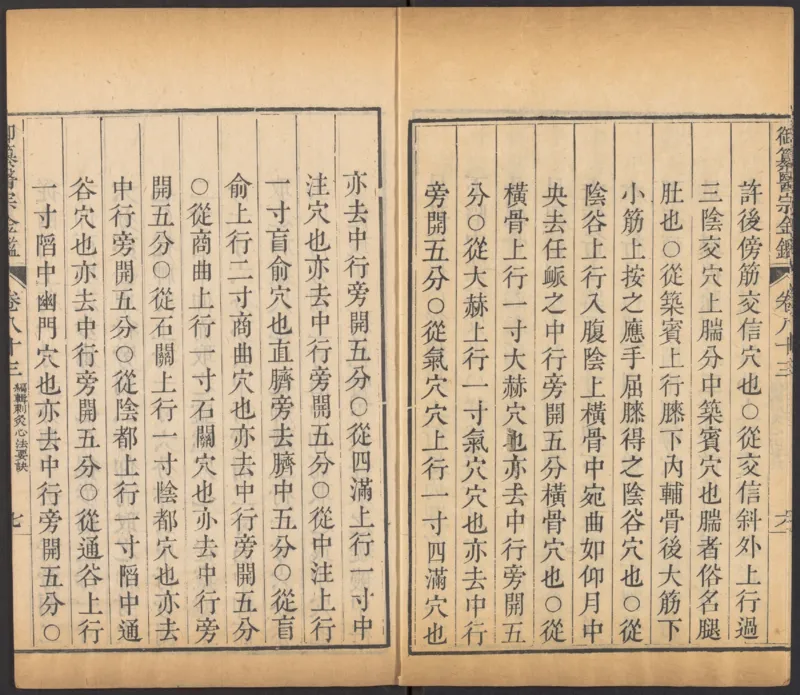 御纂醫宗金鑑 卷八十三 六
許後傍筋交信穴也○從交信斜外上行過
三陰交穴上腨分中築賓穴也腨者俗名腿
肚也○從築賓上行膝下內輔骨後大筋下
小筋上按之應手屈膝得之陰谷穴也○從
陰谷上行入腹陰上橫骨中宛曲如仰月中
央去任脈之中行旁開五分橫骨穴也○從
橫骨上行一寸大赫穴也亦去中行旁開五
分○從大赫上行一寸氣穴穴也亦去中行
旁開五分○從氣穴穴上行一寸四滿穴也
亦去中行旁開五分○從四滿上行一寸中
注穴也亦去中行旁開五分○從中注上行
一寸肓俞穴也直臍旁去臍中五分○從肓
俞上行二寸商曲穴也亦去中行旁開五分
○從商曲上行一寸石關穴也亦去中行旁
開五分○從石關上行一寸陰都穴也亦去
中行旁開五分○從陰都上行一寸陷中通
谷穴也亦去中行旁開五分○從通谷上行
一寸陷中幽門穴也亦去中行旁開五分○
御纂醫宗金鑑 卷八十三 編輯刺灸心法要訣 七